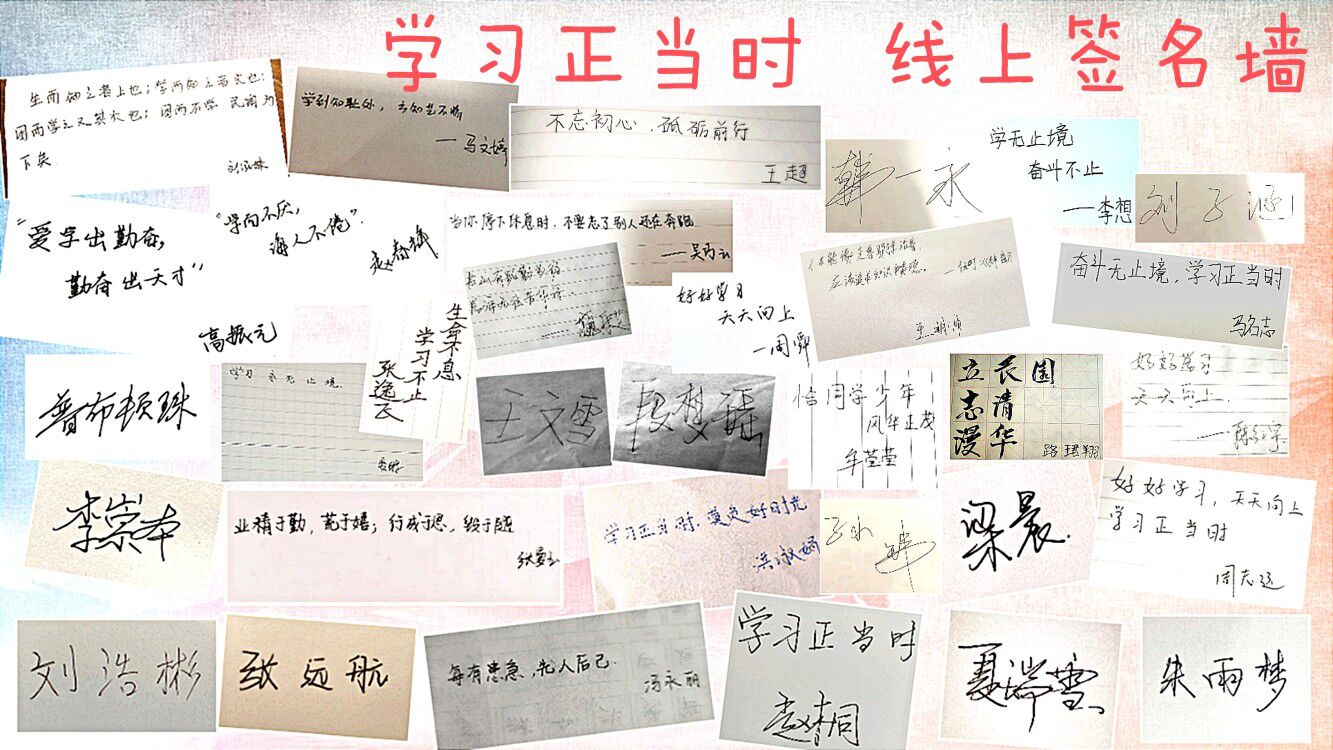 学习正当时 线上签名墙
生而知之者上也；学而知之者次也；
困而学之又其次也；困而不学 民斯为
下矣
学到知耻处，方知艺不精
——马文婷
不忘初心，砥砺前行
王超
韩一永
学无止境
奋斗不止
——李想
刘子涵
“爱学出勤奋，
勤奋出天才”
高振元
“学而不厌，
诲人不倦”.
当你停下休息时，不要忘了别人还在奔跑
——吴丙云
书山有路勤为径
好好学习
天天向上
—周霁
奋斗无止境，学习正当时
马名志
生命不息
学习不止
张逸云
普布顿珠
学习永无止境.
王文雪
段梦瑶
恰同学少年
风华正茂
牟莹莹
立长园
志清
漫华
路珺翔
好好学习
天天向上.
李崇本
业精于勤，荒于嬉；行成于思，毁于随
学习正当时，莫负好时光
洪淑娇
梁晨.
好好学习，天天向上
学习正当时
周志远
刘浩彬
致远航
每有患急，先人后己.
冯永丽
学习正当时
赵桐
夏瑞雪
朱雨梦